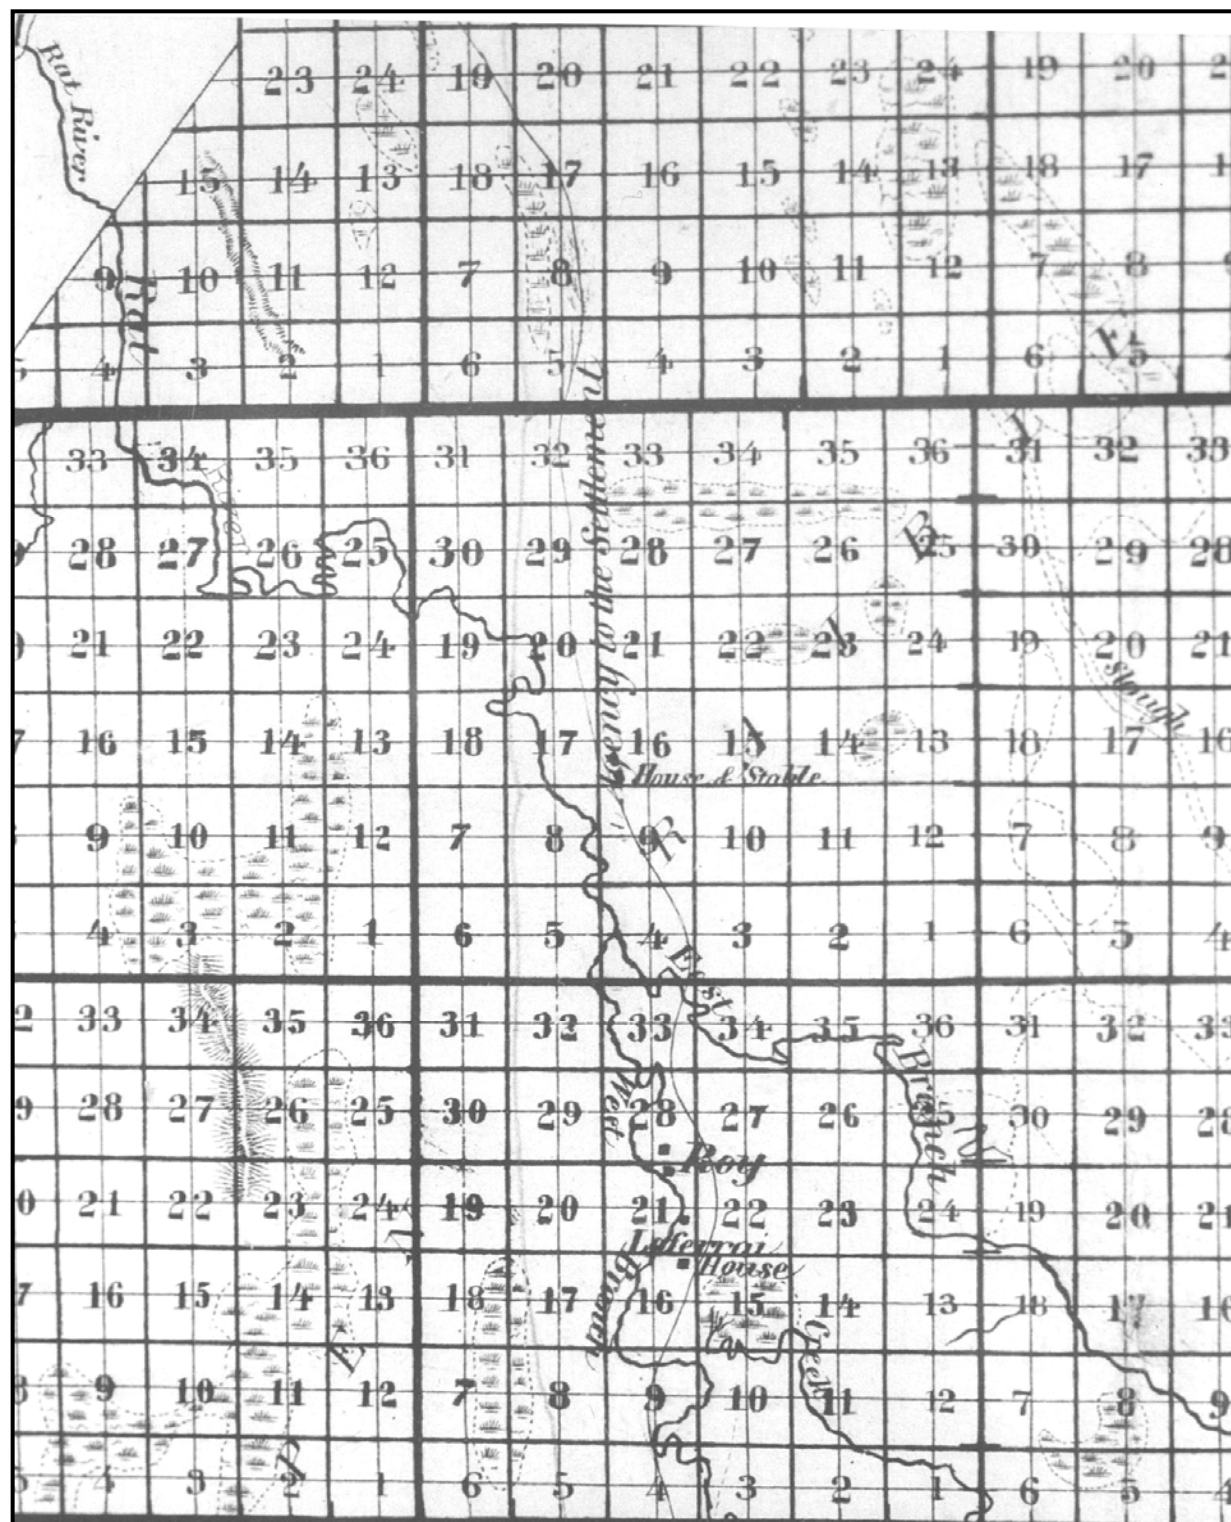 Rat River
23 24 19 20 21 22 23 24 19 20
15 14 13 18 17 16 15 14 13 18 17
9 10 11 12 7 8 9 10 11 12 7 8
Rat
4 3 2 1 6 5 4 3 2 1 6 5
33 34 35 36 31 32 33 34 35 36 31 32 33
River
Agency to the Settlement
28 27 26 25 30 29 28 27 26 25 30 29 28
21 22 23 24 19 20 21 22 23 24 19 20 21
Slough
16 15 14 13 18 17 16 15 14 13 18 17 16
House & Stable
9 10 11 12 7 8 9 10 11 12 7 8 9
4 3 2 1 6 5 4 3 2 1 6 5 4
East Branch
33 34 35 36 31 32 33 34 35 36 31 32 33
West Branch
28 27 26 25 30 29 28 27 26 25 30 29
Roy
21 22 23 24 19 20 21 22 23 24 19 20 21
House
16 15 14 13 18 17 16 15 14 13 18 17 16
Creek
9 10 11 12 7 8 9 10 11 12 7 8 9
4 3 2 1 6 5 4 3 2 1 6 5 4